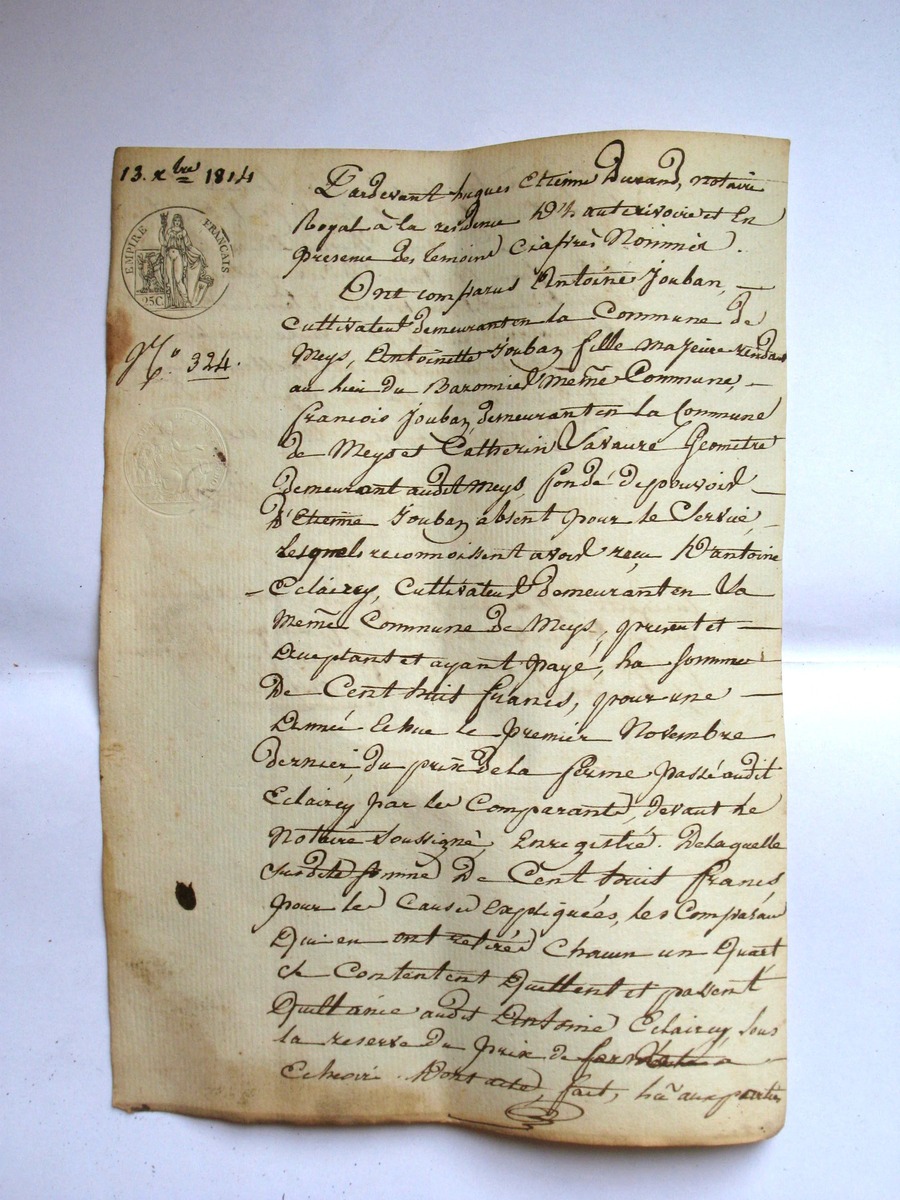 13. xbre 1814
EMPIRE FRANÇAIS
25C
N.° 324.
Pardevant hugues Etienne Durand, notaire
Royal à la residence D'hauterivoire et En
presence des temoins Ciaprès Nommés.
Ont comparus Antoine Jouban,
Cultivateur demeurant en la Commune de
Meys, Antoinette Jouban fille majeure
au lieu du même Commune,
francois Jouban demeurant en la Commune
de Meys et Catherin Lavaure Geometre
demeurant audit Meys, fondé de pouvoir
D'Etienne Jouban absent pour le Service,
Lesquels reconnoissent avoir reçu D'antoine
Eclairey, Cultivateur demeurant en La
Même Commune de Meys, present et
acceptant et ayant payé, La somme
De Cent huit francs, pour une
année Echue le premier Novembre
dernier, du prix de la ferme passé audit
Eclairey par les Comparants, devant Le
Notaire soussigné, Enregistré. De laquelle
susdite somme De Cent huit francs
pour les Causes expliquées, les Comparans
Qui en ont retirés Chacun un Quart
se Contentent Quittent et passent
Quittance audit Antoine Eclairey, sous
la reserve du prix de ferme a
Echeoir. Dont acte, fait, Lu aux parties